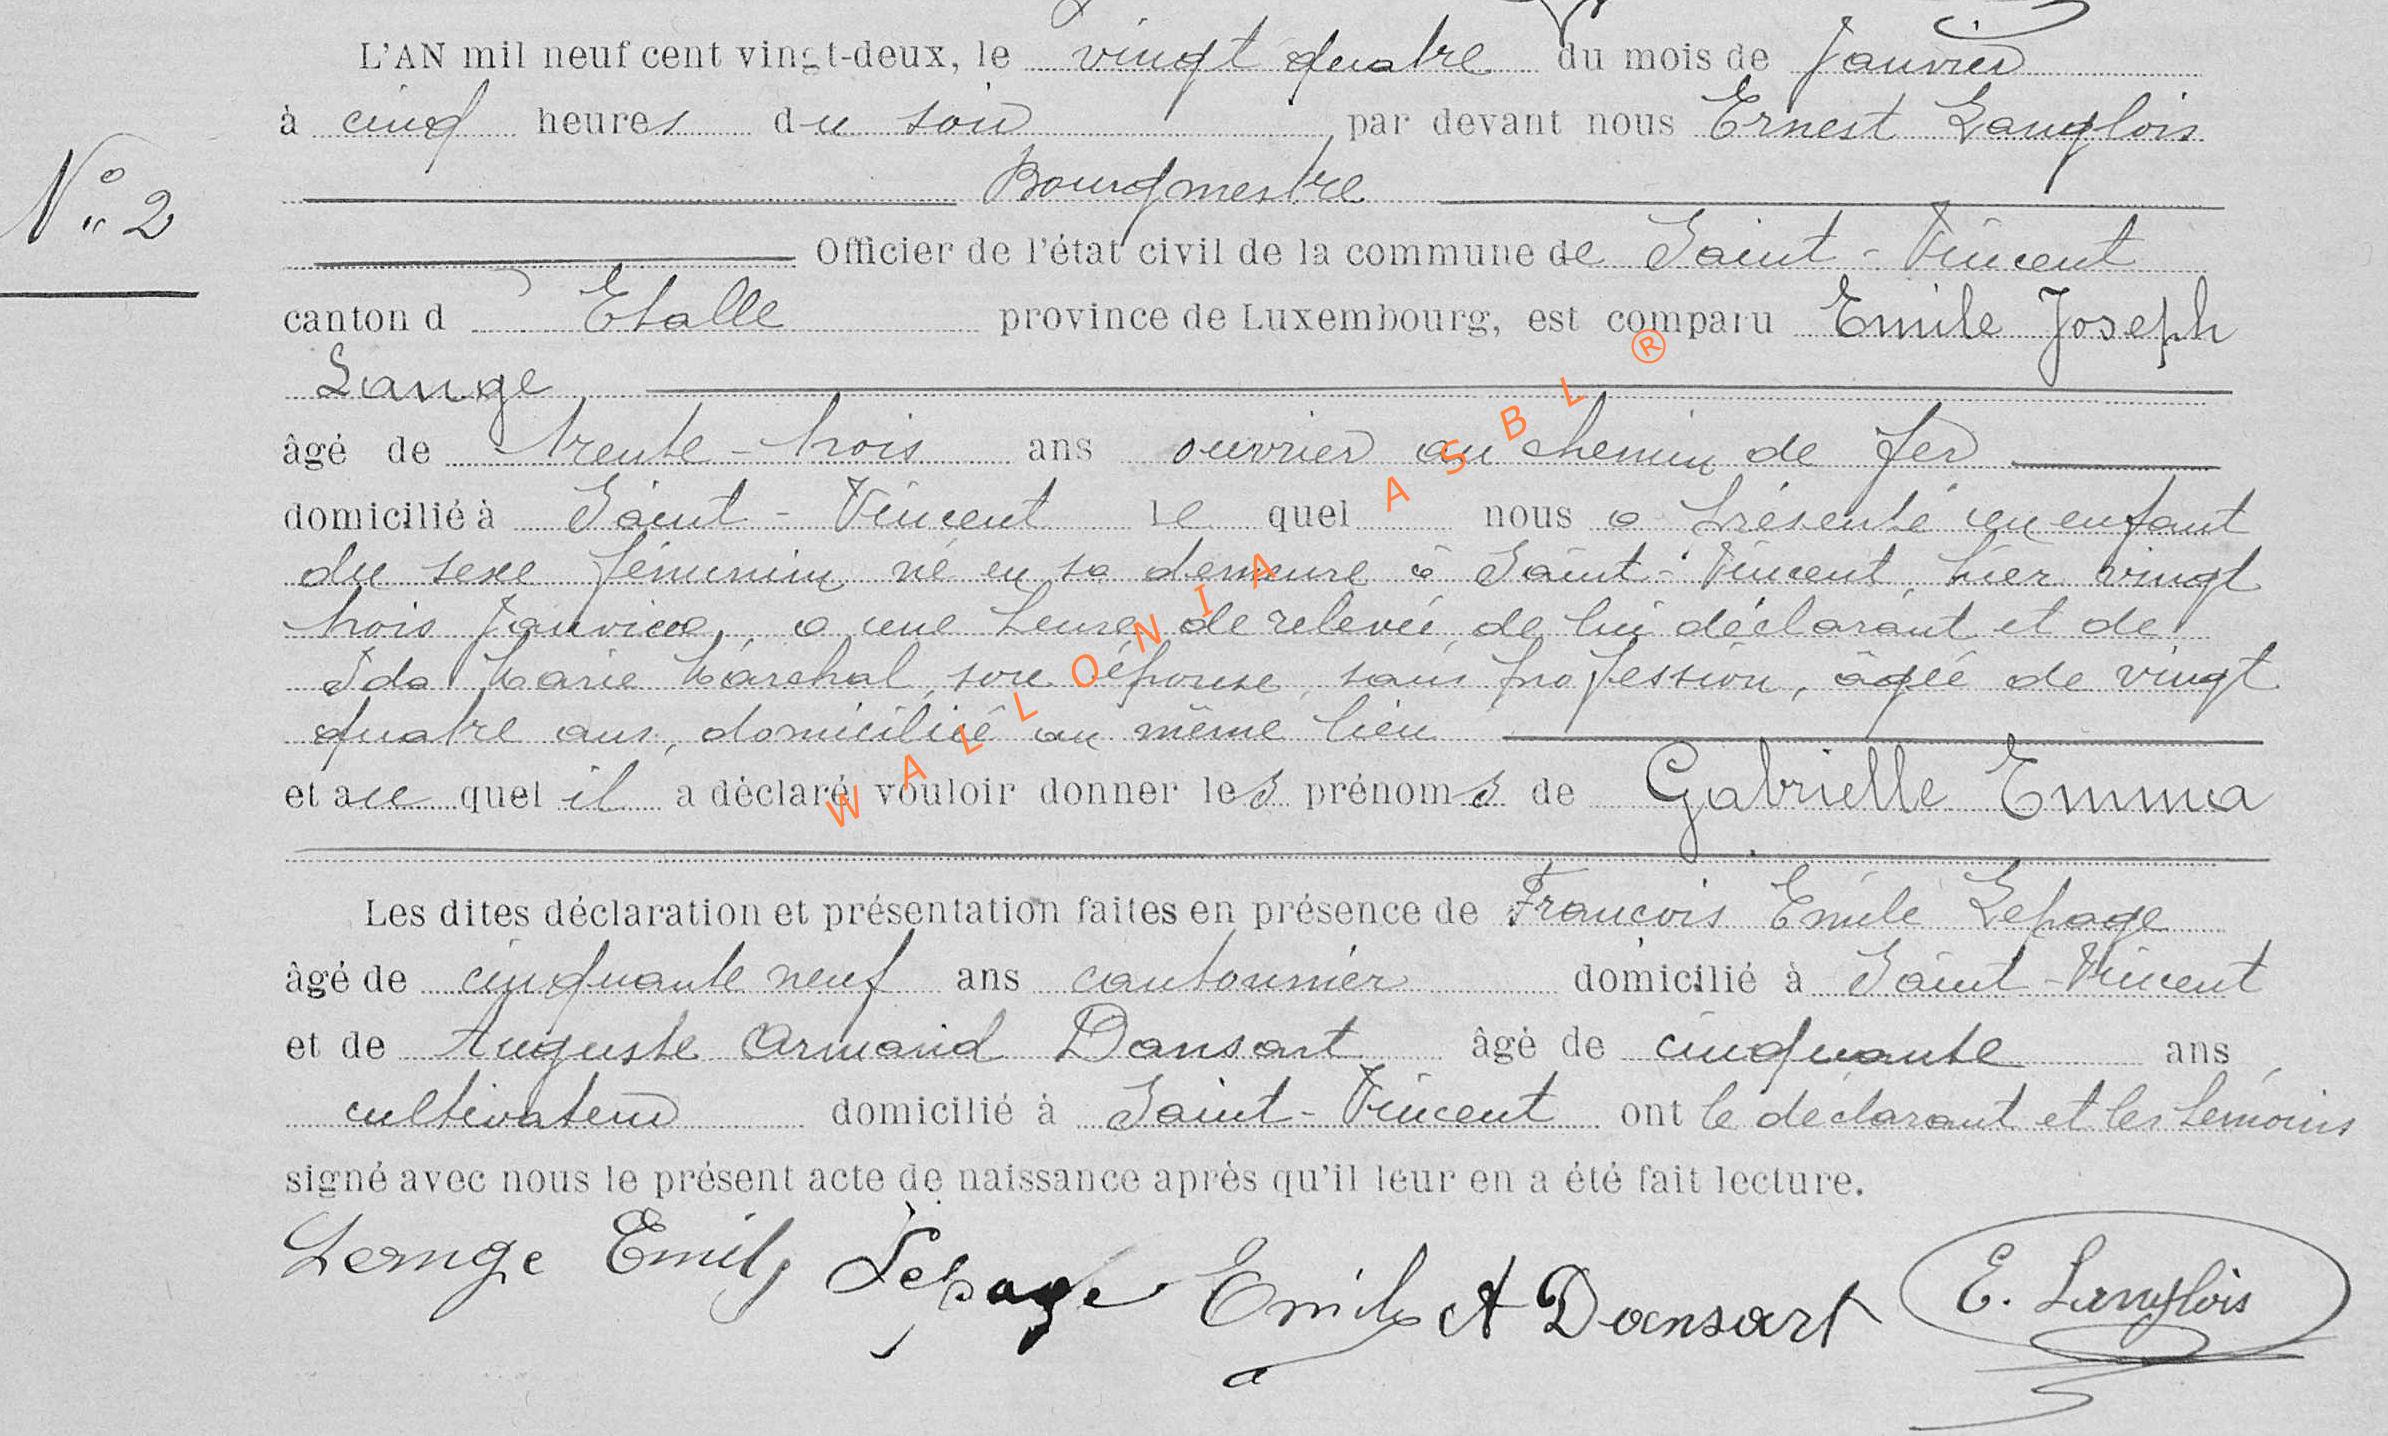 L'AN mil neuf cent vingt-deux, le vingt quatre du mois de Janvier
à cinq heures du soir par devant nous Ernest Langlois
Bourgmestre
N° 2
Officier de l'état civil de la commune de Saint-Vincent
canton d Etalle province de Luxembourg, est comparu Emile Joseph
Lange
âgé de trente-trois ans ouvrier au chemin de fer
domicilié à Saint-Vincent le quel nous a présenté un enfant
du sexe féminin né en sa demeure à Saint-Vincent, hier vingt
trois Janvier, à une heure de relevée de lui déclarant et de
Ida Marie Maréchal, son épouse, sans profession, âgée de vingt
quatre ans, domicilié au même lieu
et au quel il a déclaré vouloir donner les prénoms de Gabrielle Emma
Les dites déclaration et présentation faites en présence de François Emile Lepage
âgé de cinquante neuf ans cantonnier domicilié à Saint-Vincent
et de Auguste Armand Dansart âgé de cinquante ans
cultivateur domicilié à Saint-Vincent ont le déclarant et les témoins
signé avec nous le présent acte de naissance après qu'il leur en a été fait lecture.
Lange Emile Lepage Emile A Dansart E. Langlois
WALLONIA ASBL ®